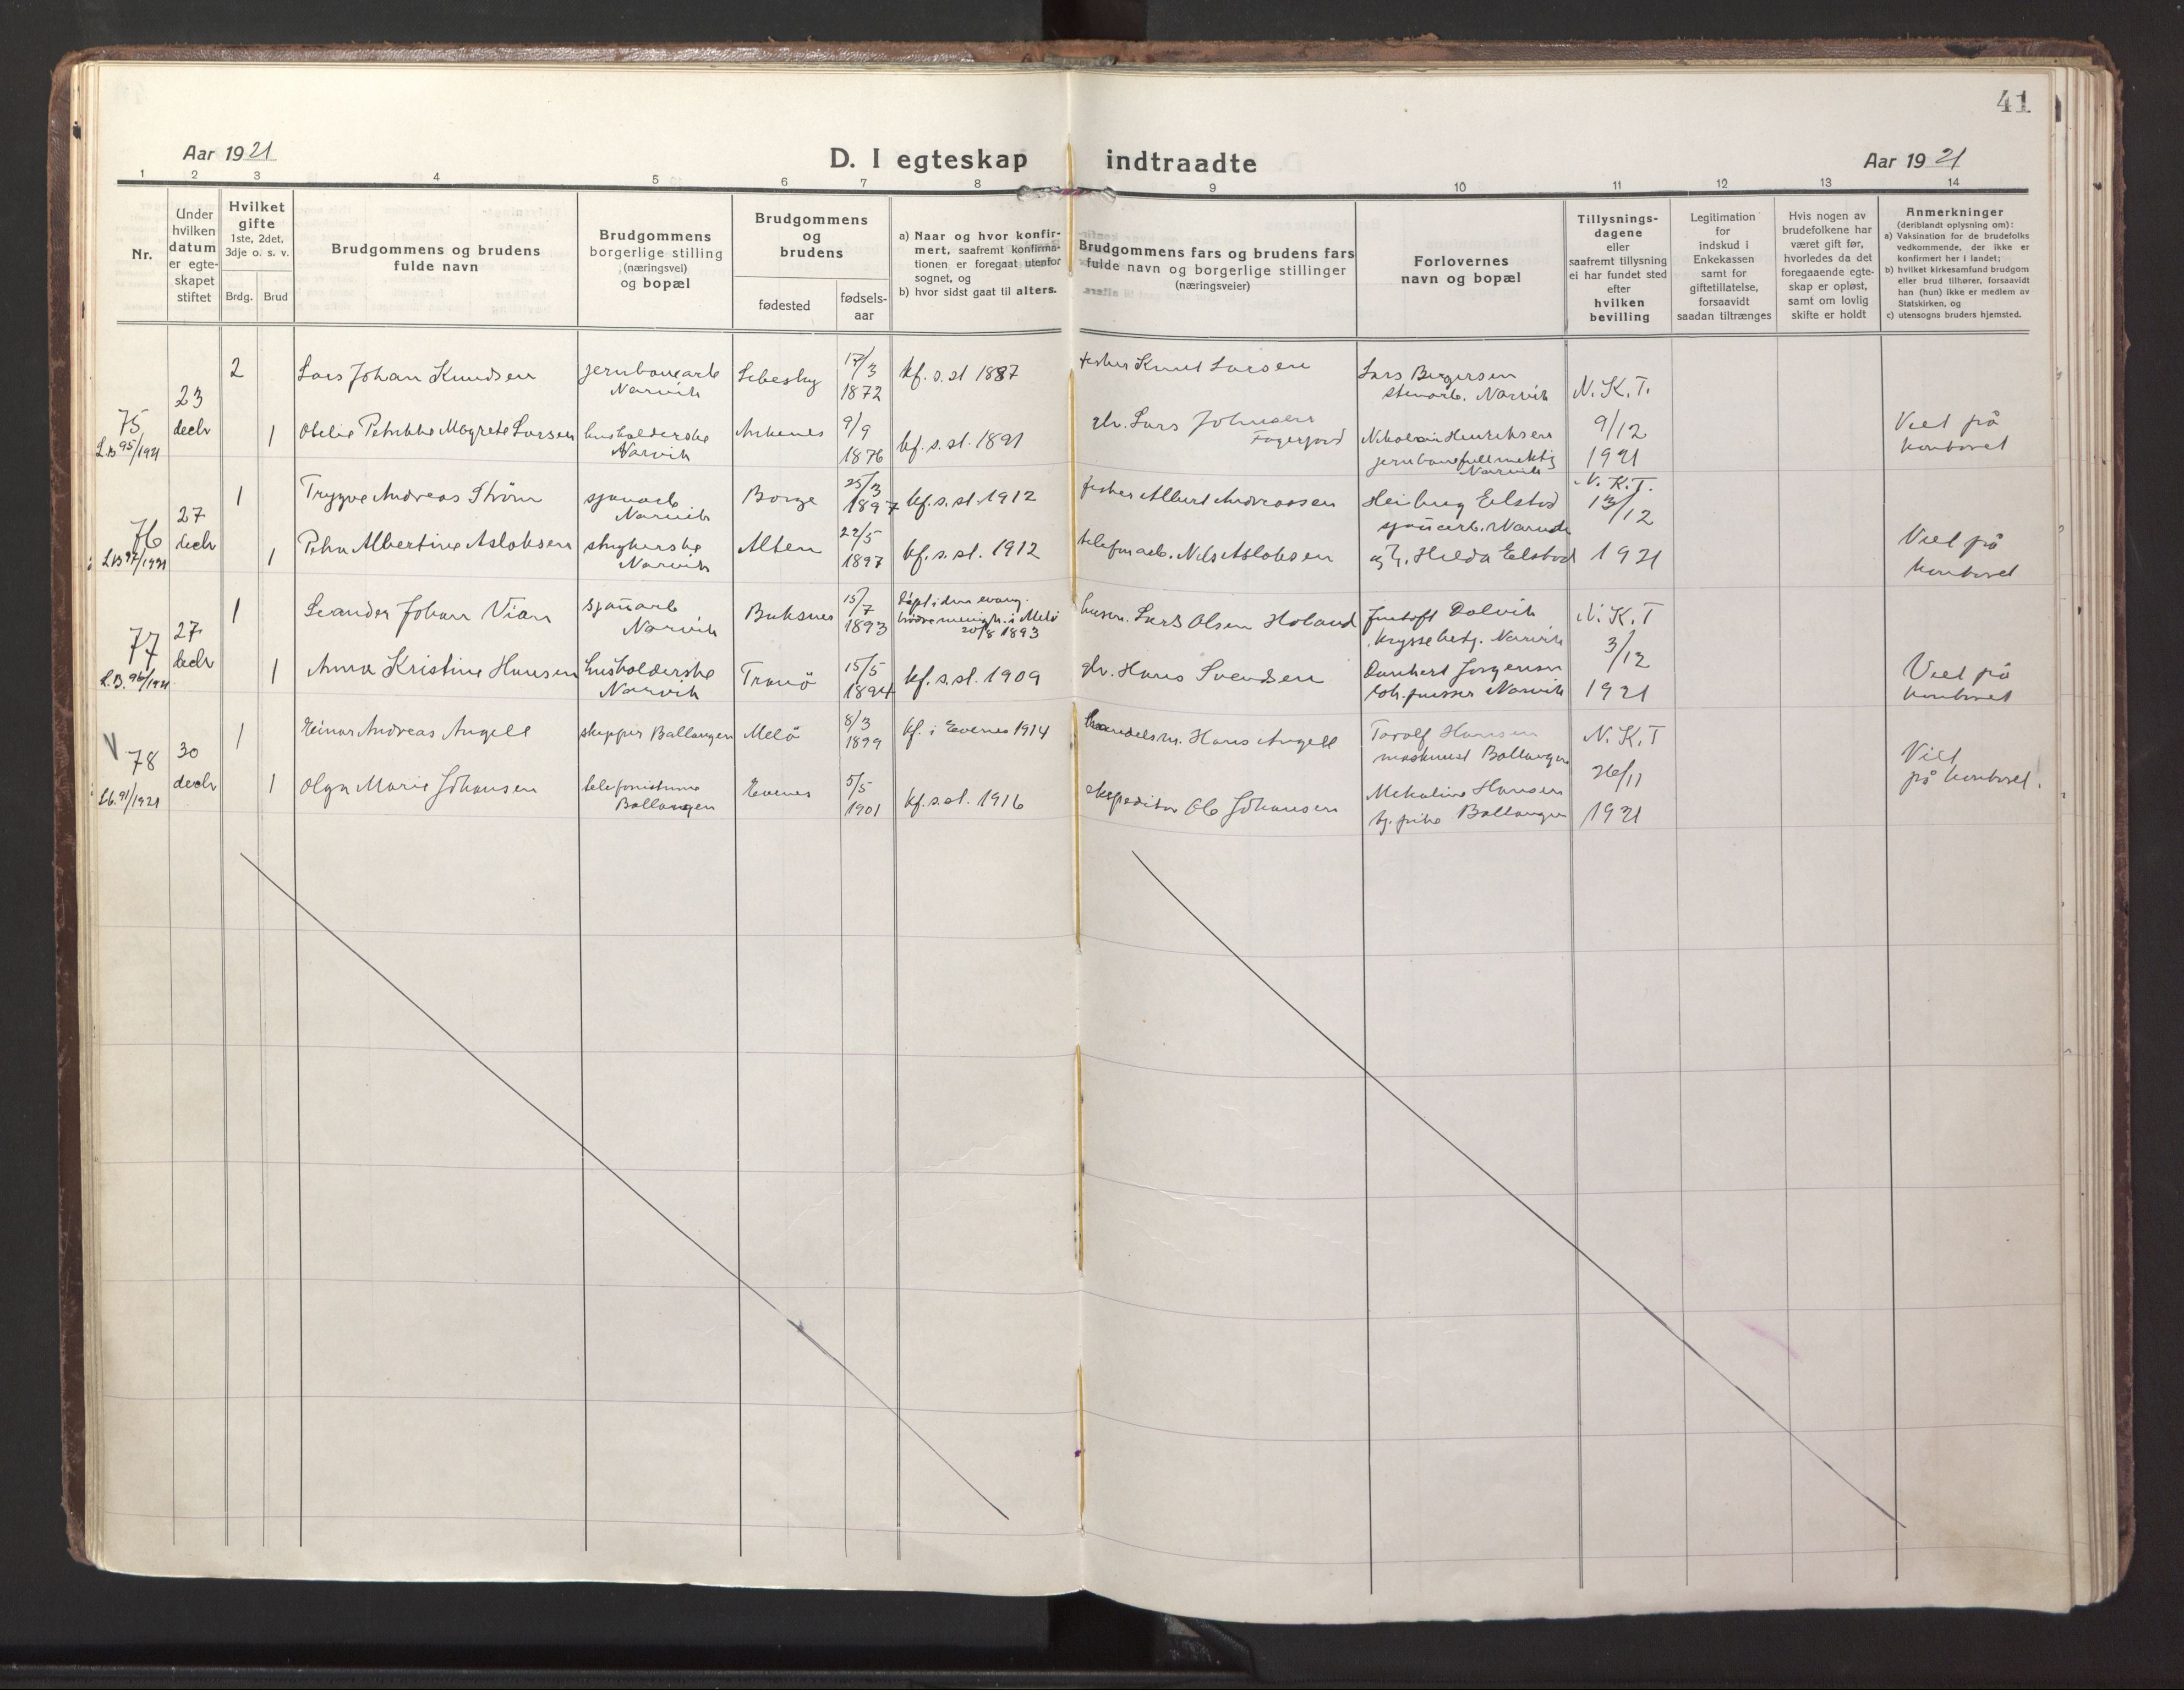 41
Aar 1921
D. I egteskap indtraadte
Aar 1921
1 2 3 4 5 6 7 8 9 10 11 12 13 14
Nr.
Under
hvilken
datum
er egte-
skapet
stiftet
Hvilket
gifte
1ste, 2det,
3dje o. s. v.
Brdg. Brud
Brudgommens og brudens
fulde navn
Brudgommens
borgerlige stilling
(næringsvei)
og bopæl
Brudgommens
og
brudens
fødested
fødsels-
aar
a) Naar og hvor konfir-
mert, saafremt konfirma-
tionen er foregaat utenfor
sognet, og
b) hvor sidst gaat til alters.
Brudgommens fars og brudens fars
fulde navn og borgerlige stillinger
(næringsveier)
Forlovernes
navn og bopæl
Tillysnings-
dagene
eller
saafremt tillysning
ei har fundet sted
efter
hvilken
bevilling
Legitimation
for
indskud i
Enkekassen
samt for
giftetillatelse,
forsaavidt
saadan tiltrænges
Hvis nogen av
brudefolkene har
været gift før,
hvorledes da det
foregaaende egte-
skap er opløst,
samt om lovlig
skifte er holdt
Anmerkninger
(deriblandt oplysning om):
a) Vaksination for de brudefolks
vedkommende, der ikke er
konfirmert her i landet;
b) hvilket kirkesamfund brudgom
eller brud tilhører, forsaavidt
han (hun) ikke er medlem av
Statskirken, og
c) utensogns bruders hjemsted.
75
L.B 95/1921
23
decbr
2
Lars Johan Knudsen
jernbanearb
Narvik
Lebesby
17/3
1872
kf. s. st 1887
fisker Knut Larsen
Lars Bergersen
stenarb. Narvik
N. K. T.
1
Otelie Petrikke Magrete Larsen
husholderske
Narvik
Ankenes
9/9
1876
kf. s. st. 1891
Lars Johnsen
Fagerjord
Nikolai Henriksen
jernbanefullmektig
Narvik
9/12
1921
Viet på
kontoret
76
L.B 97/1921
27
decbr
1
Trygve Andreas Strøm
sjauarb
Narvik
Borge
25/3
1897
kf. s. st. 1912
fisker Albert Andreassen
Heiberg Elstad
sjauarb. Narvik
N. K. T.
13/12
1
Petra Albertine Aslaksen
strykerske
Narvik
Alten
22/5
1897
kf. s. st. 1912
telefonarb. Nils Aslaksen
og h. Hilda Elstad
1921
Viet på
kontoret
77
L.B. 96/1921
27
decbr
1
Leander Johan Vian
sjauarb
Narvik
Buksnes
15/7
1893
Døpt i den evang.
20/8 1893
Lars Olsen Holand
Dalvik
Narvik
N. K. T
3/12
1
Anna Kristine Hansen
husholderske
Narvik
Tranö
15/5
1894
kf. s. st. 1909
Hans Svendsen
Jørgensen
lok. pusser Narvik
1921
Viet på
kontoret
V 78
Lb. 91/1921
30
decbr
1
Einar Andreas Angell
skipper Ballangen
Melö
8/3
1899
kf. i Evenes 1914
handelsm. Hans Angell
Torolf Hansen
maskinist Ballangen
N. K. T
26/11
1
Olga Marie Johansen
telefonistinne
Ballangen
Evenes
5/5
1901
kf. s. st. 1916
ekspeditør Ole Johansen
Mekaline Hansen
Ballangen
1921
Viet
på kontoret.